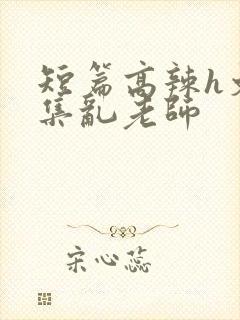 短篇高辣h文
集乱老师
宋心蕊